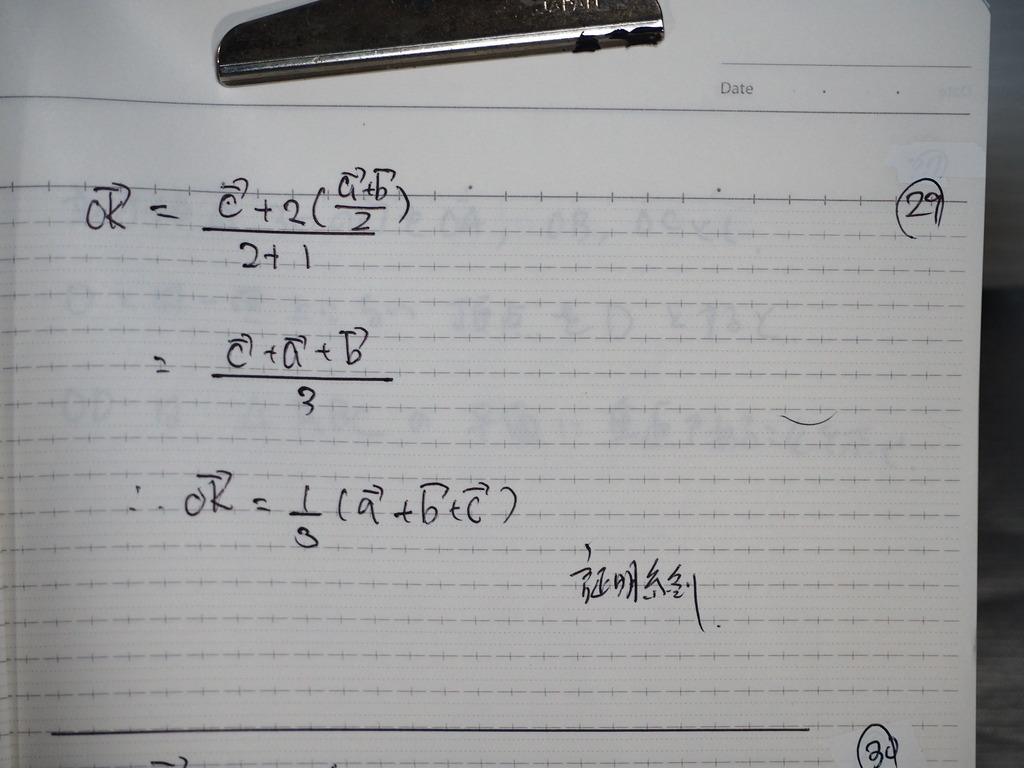 JAPAN
Date
29
$\overrightarrow{OK} = \frac{\vec{c} + 2(\frac{\vec{a}+\vec{b}}{2})}{2+1}$
$= \frac{\vec{c} + \vec{a} + \vec{b}}{3}$
$\therefore \overrightarrow{OK} = \frac{1}{3}(\vec{a} + \vec{b} + \vec{c})$
証明終
30